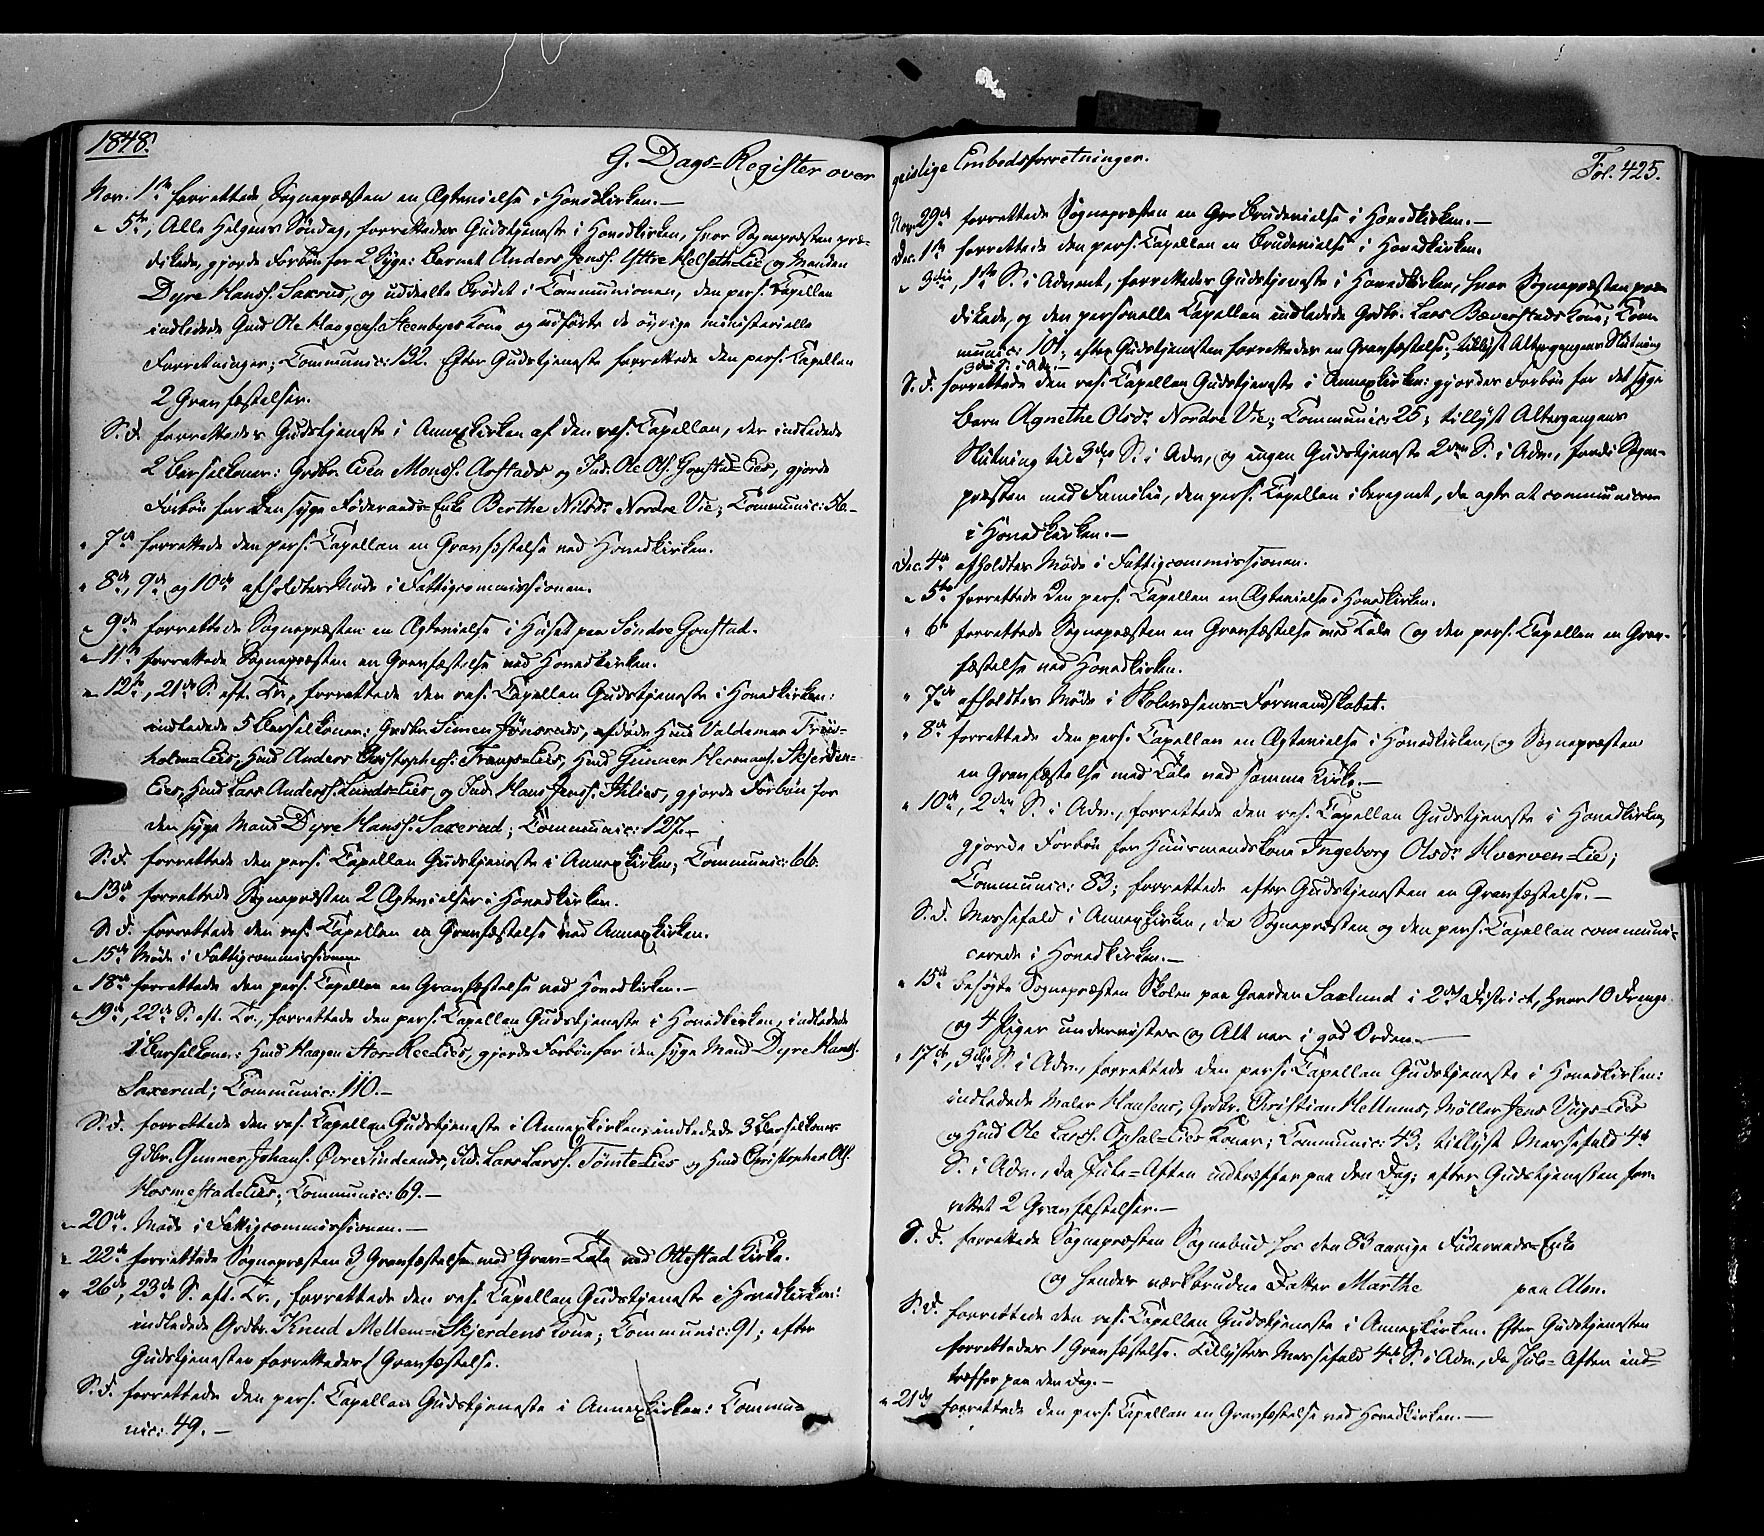 1848.
G. Dags=Register over
Nov. 1ste forrettede Sognepræsten en Ægtevielse i Hovedkirken.—
" 5te, Alle Helgens Søndag, forrettedes Gudstjeneste i Hovedkirken, hvor Sognepræsten præ-
dikede, gjorde Forbøn for 2 Syge: Barnet Anders Jenss. Østre Helseth=Eie og Manden
Dyre Hanss. Saxrud, og uddeelte Brødet i Communionen, den pers. Capellan
indledede Gmd Ole Haagens. Steenbyes Kone og udførte de øvrige ministerielle
Forretninger; Communic: 132. Efter Gudstjeneste forrettede den pers. Capellan
2 Gravfæstelser.
S. D. forrettedes Gudstjeneste i Annexkirken af den res. Capellan, der indledede
2 Barselkoner: Grdbr. Even Monss. Aarstads og Ind. Ole Ols. Gonstad=Eies, gjorde
Forbøn for den syge Føderaads=Enke Berthe Nilsdr Nordre Vie; Communic: 56.—
" 7de forrettede den pers. Capellan en Gravfæstelse ved Hovedkirken.
" 8de, 9de og 10de afholdtes Møde i Fattigcommissionen.
" 9de forrettede Sognepræsten en Ægtevielse i Huset paa Søndre Gonstad.
" 11te forrettede Sognepræsten en Gravfæstelse ved Hovedkirken.
" 12te, 21de S. eft. Tr., forrettede den res. Capellan Gudstjeneste i Hovedkirken:
indledede 5 Barselkoner: Grdbr Simen Jønsruds, afdøde Hmd Valdemar Frøis-
holm=Eies, Hmd Anders Christophers. Frangs=Eies, Hmd Gunner Hermans. Skjerden-
Eies, Hmd Lars Anderss. Lunds=Eies og Ind. Hans Jenss. Ihlies, gjorde Forbøn for
den syge Mand Dyre Hanss. Saxerud; Communic: 127.—
S. D. forrettede den pers. Capellan Gudstjeneste i Annexkirken; Communic: 66.
" 13de forrettede Sognepræsten 2 Ægtevielser i Hovedkirken.
S. D. forrettede den res. Capellan en Gravfæstelse ved Annexkirken.
" 15de Møde i Fattigcommissionen
" 18de forrettede den pers. Capellan en Gravfæstelse ved Hovedkirken.—
" 19de, 22de S. eft. Tr., forrettede den pers. Capellan Gudstjeneste i Hovedkirken, indledede
1 Barselkone: Hmd Haagen Stor-Ree=Eies, gjorde Forbøn for den syge Mand Dyre Hanss.
Saxerud; Communic: 110.—
S. D. forrettede den res. Capellan Gudstjeneste i Annexkirken, indledede 3 Barselkoner
Gdbr. Gunner Johans. Øvre Linderuds, Ind. Lars Larss. Tømte=Eies og Hmd Christopher Ols.
Hosmestad=Eies; Communic: 69.—
" 20de. Møde i Fattigcommissionen.—
" 22de forrettede Sognepræsten 3 Gravfæstelser med Grav=Tale ved Ottestad Kirke.
" 26de, 23de S. eft. Tr., forrettede den res. Capellan Gudstjeneste i Hovedkirken:
indledede Grdbr. Knud Mellem=Skjerdens Kone; Communic: 91; efter
Gudstjenesten forrettedes 1 Gravfæstelse.
S. D. forrettede den pers. Capellan Gudstjeneste i Annexkirken: Commu=
nic: 49.—
geistlige Embedsforretninger.
Fol. 425.
Nov. 29de forrettede Sognepræsten en Brudevielse i Hovedkirken.—
Dec. 1ste forrettede den pers. Capellan en Brudevielse i Hovedkirken.
" 3die, 1ste S. i Advent, forrettedes Gudstjeneste i Hovedkirken, hvor Sognepræsten præ-
dikede, og den personelle Capellan indledede Grdbr. Lars Baverstads Kone; Com-
munic: 101; efter Gudstjenesten forrettedes en Gravfæstelse; tillyst Altergangens Slutning
3die S. i Adv.—
S. D. forrettede den res. Capellan Gudstjeneste i Annexkirken: gjordes Forbøn for det syge
Barn Agnethe Olsdr Nordre Vie; Communic: 25; tillyst Altergangens
Slutning til 3die S. i Adv., og ingen Gudstjeneste 2den S. i Adv., fordi Sogne-
præsten med Familie, den pers. Capellan iberegnet, da agte at communicere
i Hovedkirken.—
Dec. 4de afholdtes Møde i Fattigcommissionen.
" 5te forrettede den pers. Capellan en Ægtevielse i Hovedkirken.
" 6te forrettede Sognepræsten en Gravfæstelse med Tale og den pers. Capellan en Grav-
fæstelse ved Hovedkirken.
" 7de afholdtes Møde i Skolevæsens=Formandskabet.
" 8de forrettede den pers. Capellan en Ægtevielse i Hovedkirken, og Sognepræsten
en Gravfæstelse med Tale ved samme Kirke.—
" 10de, 2den S. i Adv., forrettede den res. Capellan Gudstjeneste i Hovedkirken
gjorde Forbøn for Huusmandskone Ingeborg Olsdr Hverven=Eie;
Communic: 83; forrettede efter Gudstjenesten en Gravfæstelse.—
S. D. Messefald i Annexkirken, da Sognepræsten og den pers. Capellan communi-
cerede i Hovedkirken.—
" 15de besøgte Sognepræsten Skolen paa Gaarden Saxlund i 2det District, hvor 10 Drenge
og 4 Piger undervistes og Alt var i god Orden.—
" 17de, 3die S. i Adv., forrettede den pers. Capellan Gudstjeneste i Hovedkirken:
indledede Maler Hansens, Grdbr. Christian Hellums, Møller Jens Viigs=Eies
og Hmd Ole Larss. Opsal=Eies Koner; Communic: 43; tillyst Messefald 4de
S. i Adv., da Jule=Aften indtræffer paa den Dag; efter Gudstjenesten for-
rettet 2 Gravfæstelser.—
S. D. forrettede Sognepræsten Sognebud hos den 83 aarige Føderaads=Enke
og hendes værkbrudne Datter Marthe paa Alm.
S. D. forrettede den res. Capellan Gudstjeneste i Annexkirken. Efter Gudstjenesten
forrettedes 1 Gravfæstelse. Tillystes Messefald 4de S. i Adv., da Jule=Aften ind=
træffer paa den Dag.—
" 21de forrettede den pers. Capellan en Gravfæstelse ved Hovedkirken.—